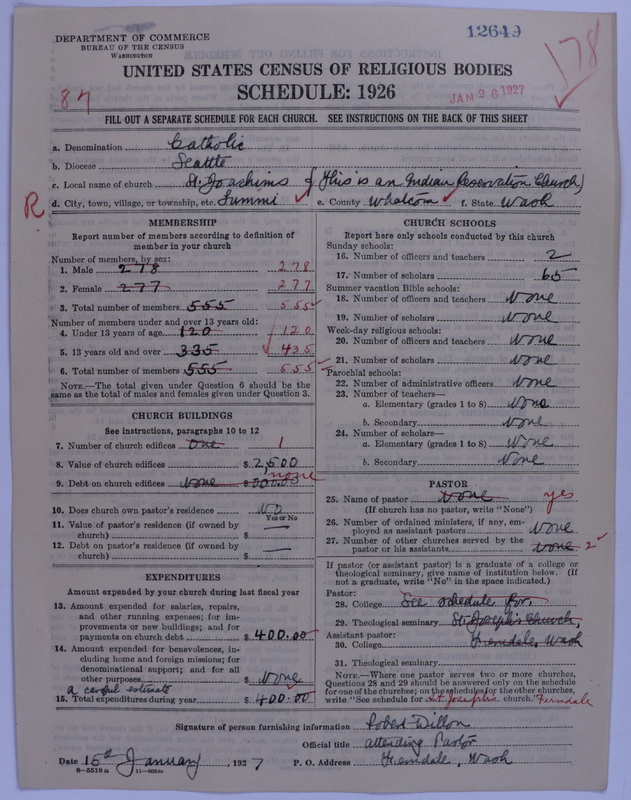 DEPARTMENT OF COMMERCE
BUREAU OF THE CENSUS
WASHINGTON
12649
178
UNITED STATES CENSUS OF RELIGIOUS BODIES
SCHEDULE: 1926
87
JAN 26 1927
FILL OUT A SEPARATE SCHEDULE FOR EACH CHURCH. SEE INSTRUCTIONS ON THE BACK OF THIS SHEET
a. Denomination Catholic
b. Diocese Seattle
c. Local name of church St. Joachims (This is an Indian Reservation Church)
R
d. City, town, village, or township, etc. Lummi e. County Whatcom f. State Wash
MEMBERSHIP
Report number of members according to definition of
member in your church
Number of members, by sex:
1. Male 278 278
2. Female 277 277
3. Total number of members 555 555
Number of members under and over 13 years old:
4. Under 13 years of age 120 120
5. 13 years old and over 335 435
6. Total number of members 555 555
NOTE.—The total given under Question 6 should be the
same as the total of males and females given under Question 3.
CHURCH BUILDINGS
See instructions, paragraphs 10 to 12
7. Number of church edifices One 1
8. Value of church edifices $2,500
9. Debt on church edifices None $000.00 none
10. Does church own pastor's residence No
Yes or No
11. Value of pastor's residence (if owned by
church) $
12. Debt on pastor's residence (if owned by
church) $
EXPENDITURES
Amount expended by your church during last fiscal year
13. Amount expended for salaries, repairs,
and other running expenses; for im-
provements or new buildings; and for
payments on church debt $400.00
14. Amount expended for benevolences, in-
cluding home and foreign missions; for
denominational support; and for all
other purposes $None
a careful estimate
15. Total expenditures during year $400.00
CHURCH SCHOOLS
Report here only schools conducted by this church
Sunday schools:
16. Number of officers and teachers 2
17. Number of scholars 65
Summer vacation Bible schools:
18. Number of officers and teachers None
19. Number of scholars None
Week-day religious schools:
20. Number of officers and teachers None
21. Number of scholars None
Parochial schools:
22. Number of administrative officers None
23. Number of teachers—
a. Elementary (grades 1 to 8) None
b. Secondary None
24. Number of scholars—
a. Elementary (grades 1 to 8) None
b. Secondary None
PASTOR
25. Name of pastor None yes
(If church has no pastor, write "None")
26. Number of ordained ministers, if any, em-
ployed as assistant pastors None
27. Number of other churches served by the
pastor or his assistants None 2
If pastor (or assistant pastor) is a graduate of a college or
theological seminary, give name of institution below. (If
not a graduate, write "No" in the space indicated.)
Pastor:
28. College See schedule for,
29. Theological seminary St. Joseph's Church,
Assistant pastor:
30. College Ferndale, Wash
31. Theological seminary
NOTE.—Where one pastor serves two or more churches,
Questions 28 and 29 should be answered only on the schedule
for one of the churches; on the schedules for the other churches,
write "See schedule for St Josephs church." Ferndale
Signature of person furnishing information Robert Dillon
Official title attending Pastor
Date 15th January, 1927 P. O. Address Ferndale, Wash
8—5518 a